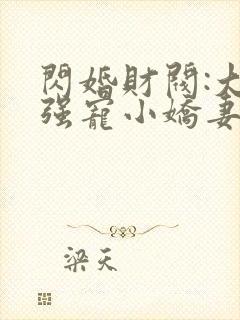 閃婚財閥:大
强寵小嬌妻
梁天